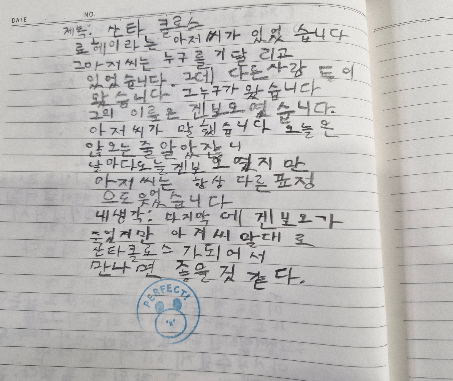 DATE NO.
제목: 산타 클로스
로헤이라는 아저씨가 있었 습니다
그아저씨는 누구를 기달 리고
있었습니다. 그데 다른사람 들이
왔 습니다. 그누구가 왔습니다
그의 이름은 겐보오 였습니다.
아저씨가 말했습니다 오늘은
안오는 줄 알았잖니
날마다오늘 겐보오 였지만
아저씨는 항상 다른 표정
으로 웃었습니다
내생각: 마지막 에 겐보오가
죽었지만 아저씨 말대 로
산타클로스 가되어서
만나 면 좋을것 같다.
PERFECT!